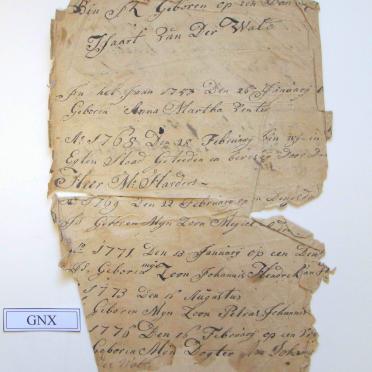 Bin Ik Geboren op een Don
Tjaart Van Der Walt
In het Jaar 1757 Den 26 Januarij
Geboren Anna Martha Venter
Ao 1765 Den 18 Februarij bin wij in
Egten Staad Getreeden en bevestig door Den
Heer Mr Harders
1769 Den 22 Februarij op en
Is Geboren Myn Zoon
Ao 1771 Den 13 Januarij op een Den
Is Geboren myn Zoon Johannis Hendrek Van
1773 Den 1 Augustus
Geboren Myn Zoon Petrus Johannis
1776 Den 16 Februarij op een
Geboren Myn Dogter
Der Walt
GNX